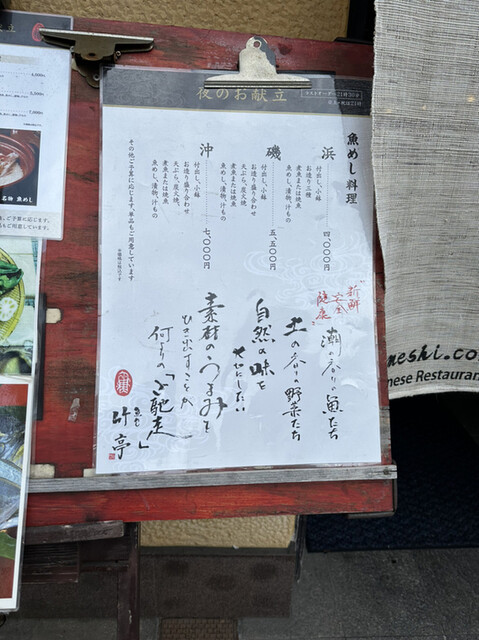 夜のお献立
ラストオーダー21時30分
魚めし料理
浜 四、〇〇〇円
付出し、小鉢
お造り三種
煮魚または焼魚
魚めし、漬物、汁もの
磯 五、五〇〇円
付出し、小鉢
お造り盛り合わせ
煮魚または焼魚
魚めし、漬物、汁もの
沖 七、〇〇〇円
付出し、小鉢
お造り盛り合わせ
天ぷら、炭火焼
煮魚または焼魚
魚めし、漬物、汁もの
その他ご予算に応じます。単品もご用意しています
新鮮
安全
健康
潮の香りの魚たち
土の香りの野菜たち
自然の味を
大切にしたい
素材のうまみを
ひき出すことが
何よりの「ご馳走」
竹亭
meshi.co
nese Restauran
魚めし
ご予算に応じます。
もご用意しています。